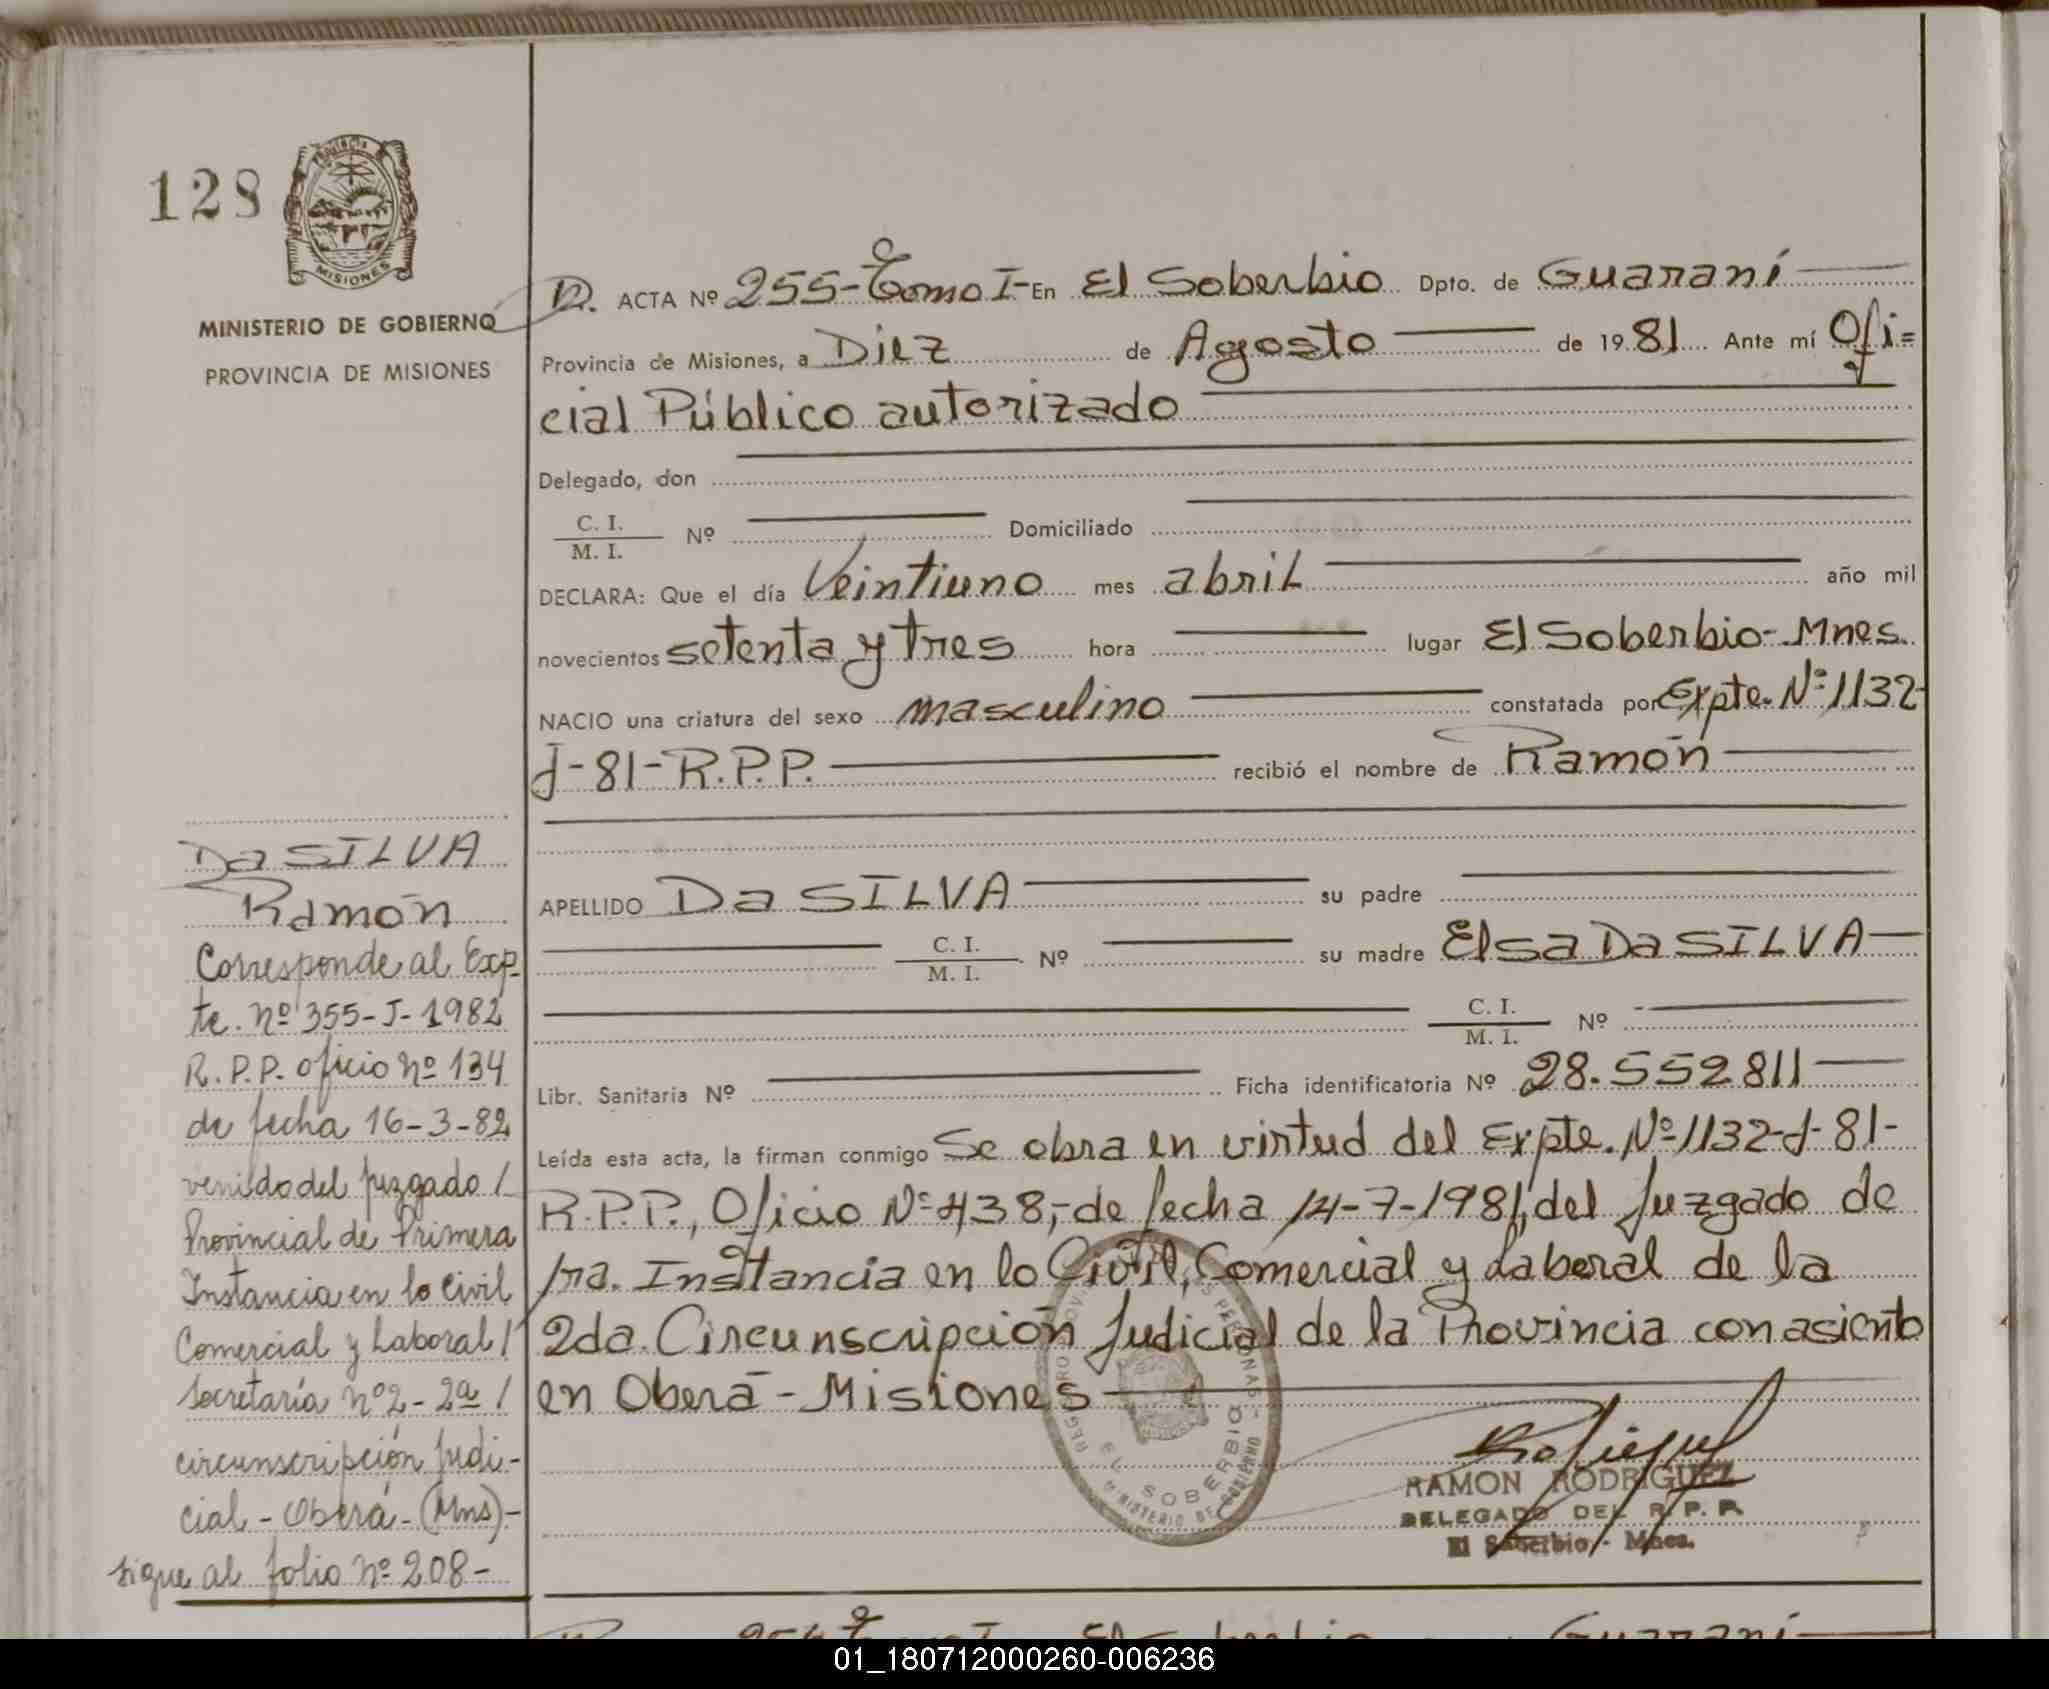 128
MISIONES
MINISTERIO DE GOBIERNO
PROVINCIA DE MISIONES
D. ACTA Nº 255-Tomo I- En El Soberbio Dpto. de Guaraní
Provincia de Misiones, a Diez de Agosto de 1981 Ante mí Ofi=
cial Público autorizado
Delegado, don
C. I.
M. I. Nº Domiciliado
DECLARA: Que el día Veintiuno mes abril año mil
novecientos setenta y tres hora lugar El Soberbio-Mnes.
NACIO una criatura del sexo masculino constatada por Expte. Nº 1132-
J-81-R.P.P. recibió el nombre de Ramón
APELLIDO Da SILVA su padre
C. I.
M. I. Nº su madre Elsa Da SILVA
C. I.
M. I. Nº
Libr. Sanitaria Nº Ficha identificatoria Nº 28.552811
Leída esta acta, la firman conmigo Se obra en virtud del Expte. Nº 1132-J-81-
R.P.P., Oficio Nº 438,-de fecha 14-7-1981, del Juzgado de
1ra. Instancia en lo Civil, Comercial y Laboral de la
2da. Circunscripción Judicial de la Provincia con asiento
en Oberá-Misiones
EL SOBERBIO
MINISTERIO DE GOBIERNO
RAMON RODRIGUEZ
DELEGADO DEL R. P. P.
El Soberbio - Mnes.
Da SILVA
Ramón
Corresponde al Exp-
te. nº 355-J-1982
R.P.P. oficio nº 134
de fecha 16-3-82
venido del juzgado /
Provincial de Primera
Instancia en lo Civil
Comercial y Laboral /
Secretaría nº 2-2ª /
circunscripción Judi-
cial - Oberá - (Mns)-
sigue al folio nº 208-
Tomo I El Soberbio Guaraní
01_180712000260-006236